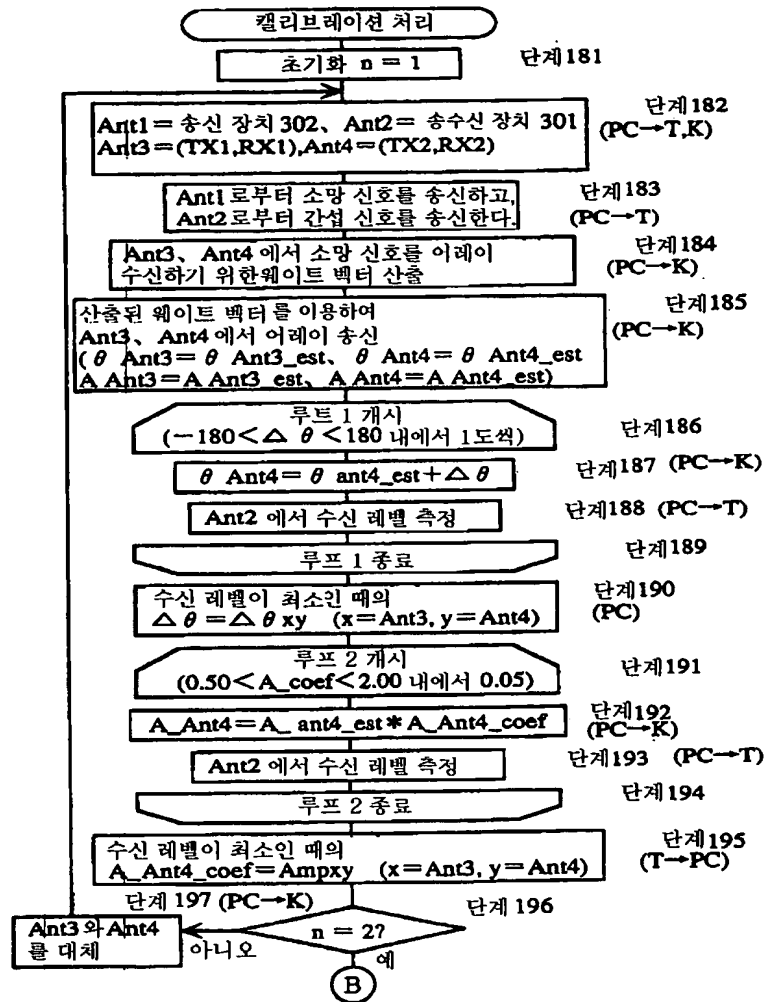 캘리브레이션 처리
초기화 n = 1
단계181
Ant1＝송신 장치 302、Ant2＝ 송수신 장치 301
Ant3＝(TX1,RX1),Ant4＝(TX2,RX2)
단계182
(PC→T,K)
Ant1로부터 소망 신호를 송신하고,
Ant2로부터 간섭 신호를 송신한다.
단계183
(PC→T)
Ant3、Ant4 에서 소망 신호를 어레이
수신하기 위한웨이트 벡터 산출
단계184
(PC→K)
산출된 웨이트 벡터를 이용하여
Ant3、Ant4 에서 어레이 송신
( θ Ant3＝ θ Ant3_est、θ Ant4＝ θ Ant4_est
A Ant3＝A Ant3_est、A Ant4＝A Ant4_est)
단계185
(PC→K)
루트 1 개시
(－180＜△ θ ＜180 내에서 1도씩)
단계186
θ Ant4＝ θ ant4_est＋△ θ
단계187 (PC→K)
Ant2 에서 수신 레벨 측정
단계188 (PC→T)
루프 1 종료
단계189
수신 레벨이 최소인 때의
△ θ ＝△ θ xy (x＝Ant3, y＝Ant4)
단계190
(PC)
루프 2 개시
(0.50＜A_coef＜2.00 내에서 0.05)
단계191
A_Ant4＝A_ ant4_est＊A_Ant4_coef
단계192
(PC→K)
Ant2 에서 수신 레벨 측정
단계193 (PC→T)
루프 2 종료
단계194
수신 레벨이 최소인 때의
A_Ant4_coef＝Ampxy (x＝Ant3, y＝Ant4)
단계195
(T→PC)
단계197 (PC→K)
단계196
Ant3 와 Ant4
를 대체
아니오
n ＝ 2?
예
B